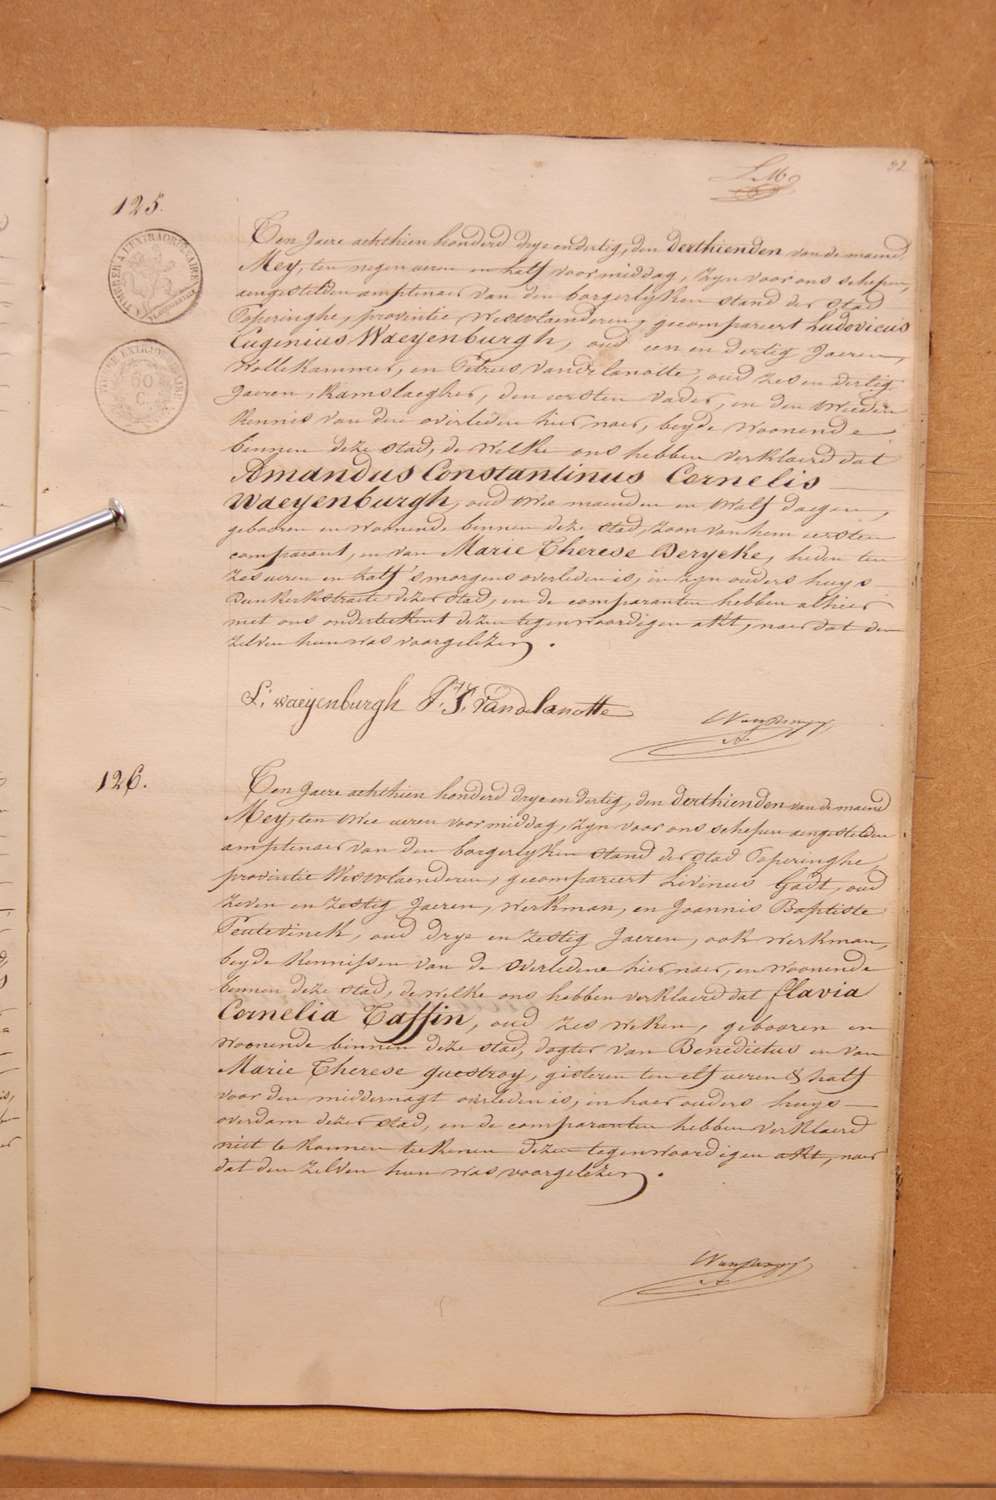 52
125.
Ten Jaere achthien honderd drye en dertig, den derthienden van de maend
Mey, ten negen ueren en half voormiddag, zyn voor ons schepen,
aengestelden amptenaer van den borgerlyken stand der stad
Poperinghe, provintie Westvlaenderen, gecompareert Ludovicus
Eugenius Waeyenburgh, oud een en dertig Jaeren,
Wollekammer, en Petrus Vandelanotte, oud zes en dertig
Jaeren, Kamslaegher, den eersten vader, en den tweeden
kennis van den overleden hier naer, beyde woonende
binnen deze stad, de welke ons hebben verklaerd dat
Amandus Constantinus Cornelis
Waeyenburgh, oud twee maenden en twalf daegen,
gebooren en woonende binnen deze stad, zoon van hem eersten
comparant, en van Marie Therese Derycke, heden ten
zes ueren en half 's morgens overleden is, in zyn ouders huys
Dunkerkstraete dezer stad, en de comparanten hebben alhier
met ons onderteekent dezen tegenwoordigen akt, naer dat den
zelven hun was voorgelezen.
L. waeyenburgh P. J. Vandelanotte
126.
Ten Jaere achthien honderd drye en dertig, den derthienden van de maend
Mey, ten twee ueren voormiddag, zyn voor ons schepen aengestelden
amptenaer van den borgerlyken stand der stad Poperinghe,
provintie Westvlaenderen, gecompareert Livinus Gadt, oud
zeven en zestig Jaeren, werkman, en Joannis Baptiste
Peutevinck, oud drye en zestig Jaeren, ook werkman,
beyde kennissen van de overledene hier naer, en woonende
binnen deze stad, de welke ons hebben verklaerd dat flavia
Cornelia Taffin, oud zes weken, gebooren en
woonende binnen deze stad, dogter van Benedictus en van
Marie Therese questroy, gisteren ten elf ueren & half
voor den middernagt overleden is, in haer ouders huys
overdam dezer stad, en de comparanten hebben verklaerd
niet te konnen teekenen dezen tegenwoordigen akt, naer
dat den zelven hun was voorgelezen.